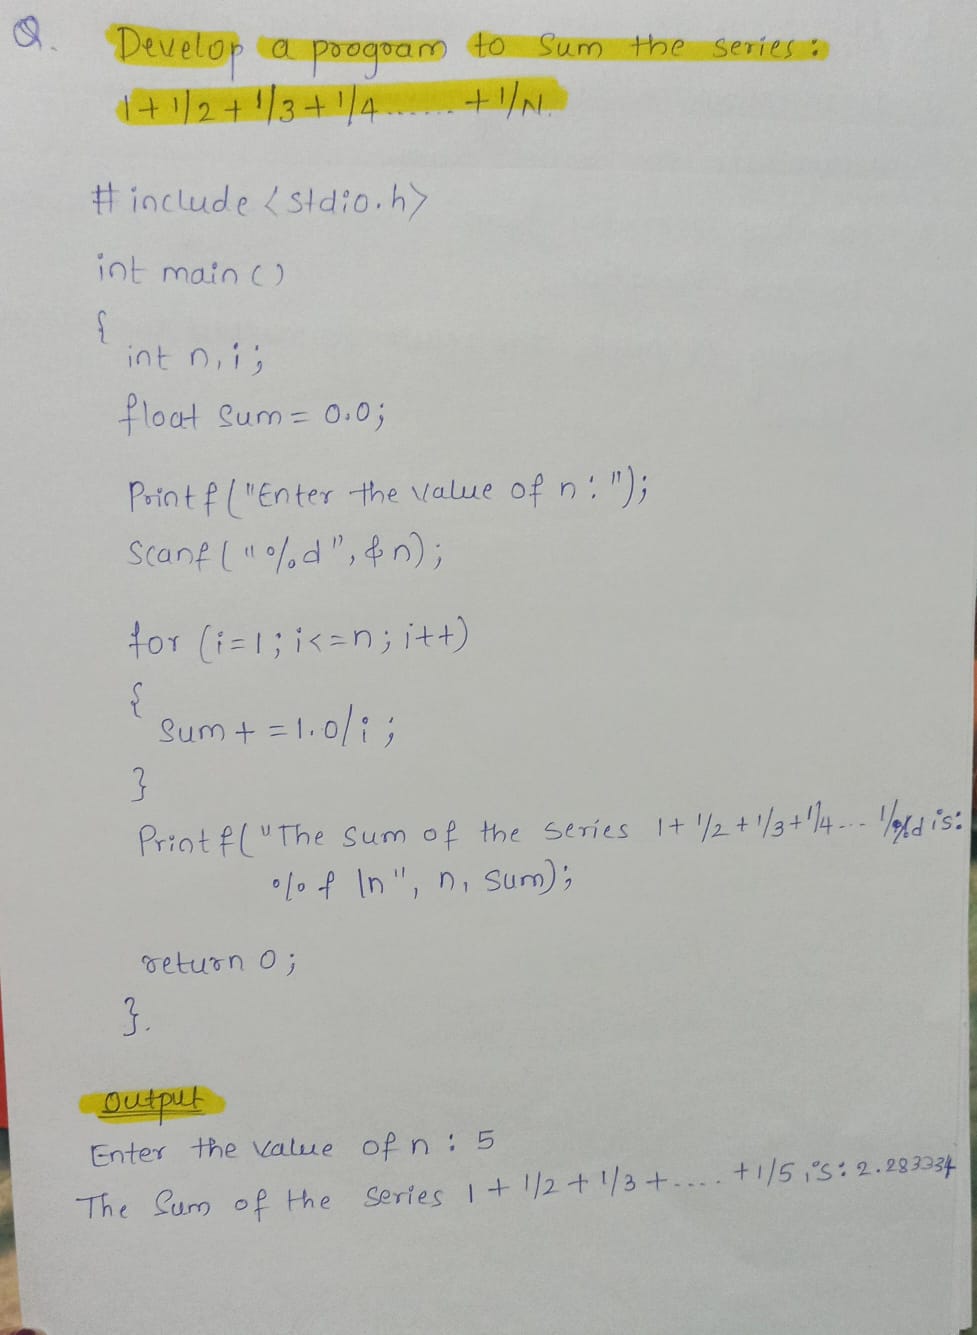 Q. Develop a program to sum the series :
1 + 1/2 + 1/3 + 1/4 ...... + 1/N.
# include <stdio.h>
int main ()
{
int n, i ;
float sum = 0.0;
Printf ("Enter the value of n : ");
Scanf ( "%d", &n);
for (i=1; i<=n; i++)
{
Sum + = 1.0/i ;
}
Printf ("The sum of the series 1 + 1/2 + 1/3 + 1/4 ... 1/%d is:
%f \n", n, sum);
return 0;
}.
Output
Enter the value of n : 5
The Sum of the Series 1 + 1/2 + 1/3 + .... + 1/5 is : 2.283334